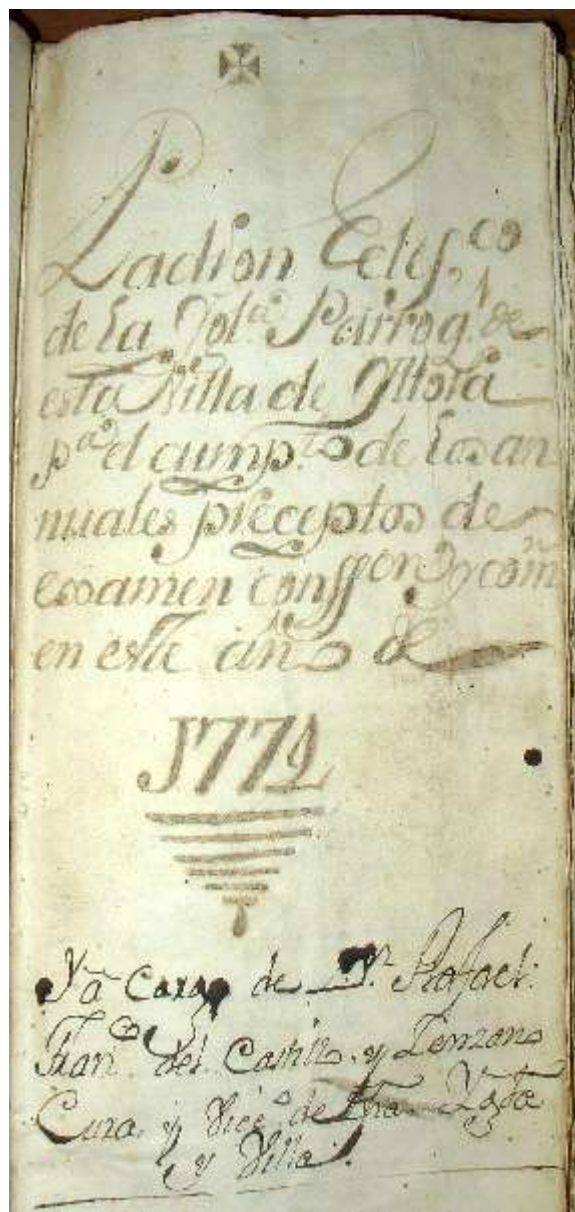 Padron Ecles.co
de la Ygl.a Parroq.l de
esta Villa de Yllora
p.a el cumpt.o de los an
nuales preceptos de
examen conff.on y com.n
en este año de
1772
Ya cargo de D.n Rafael
Fran.co del Castillo y
Cura y Ben.do de dha Ygla
y Villa.